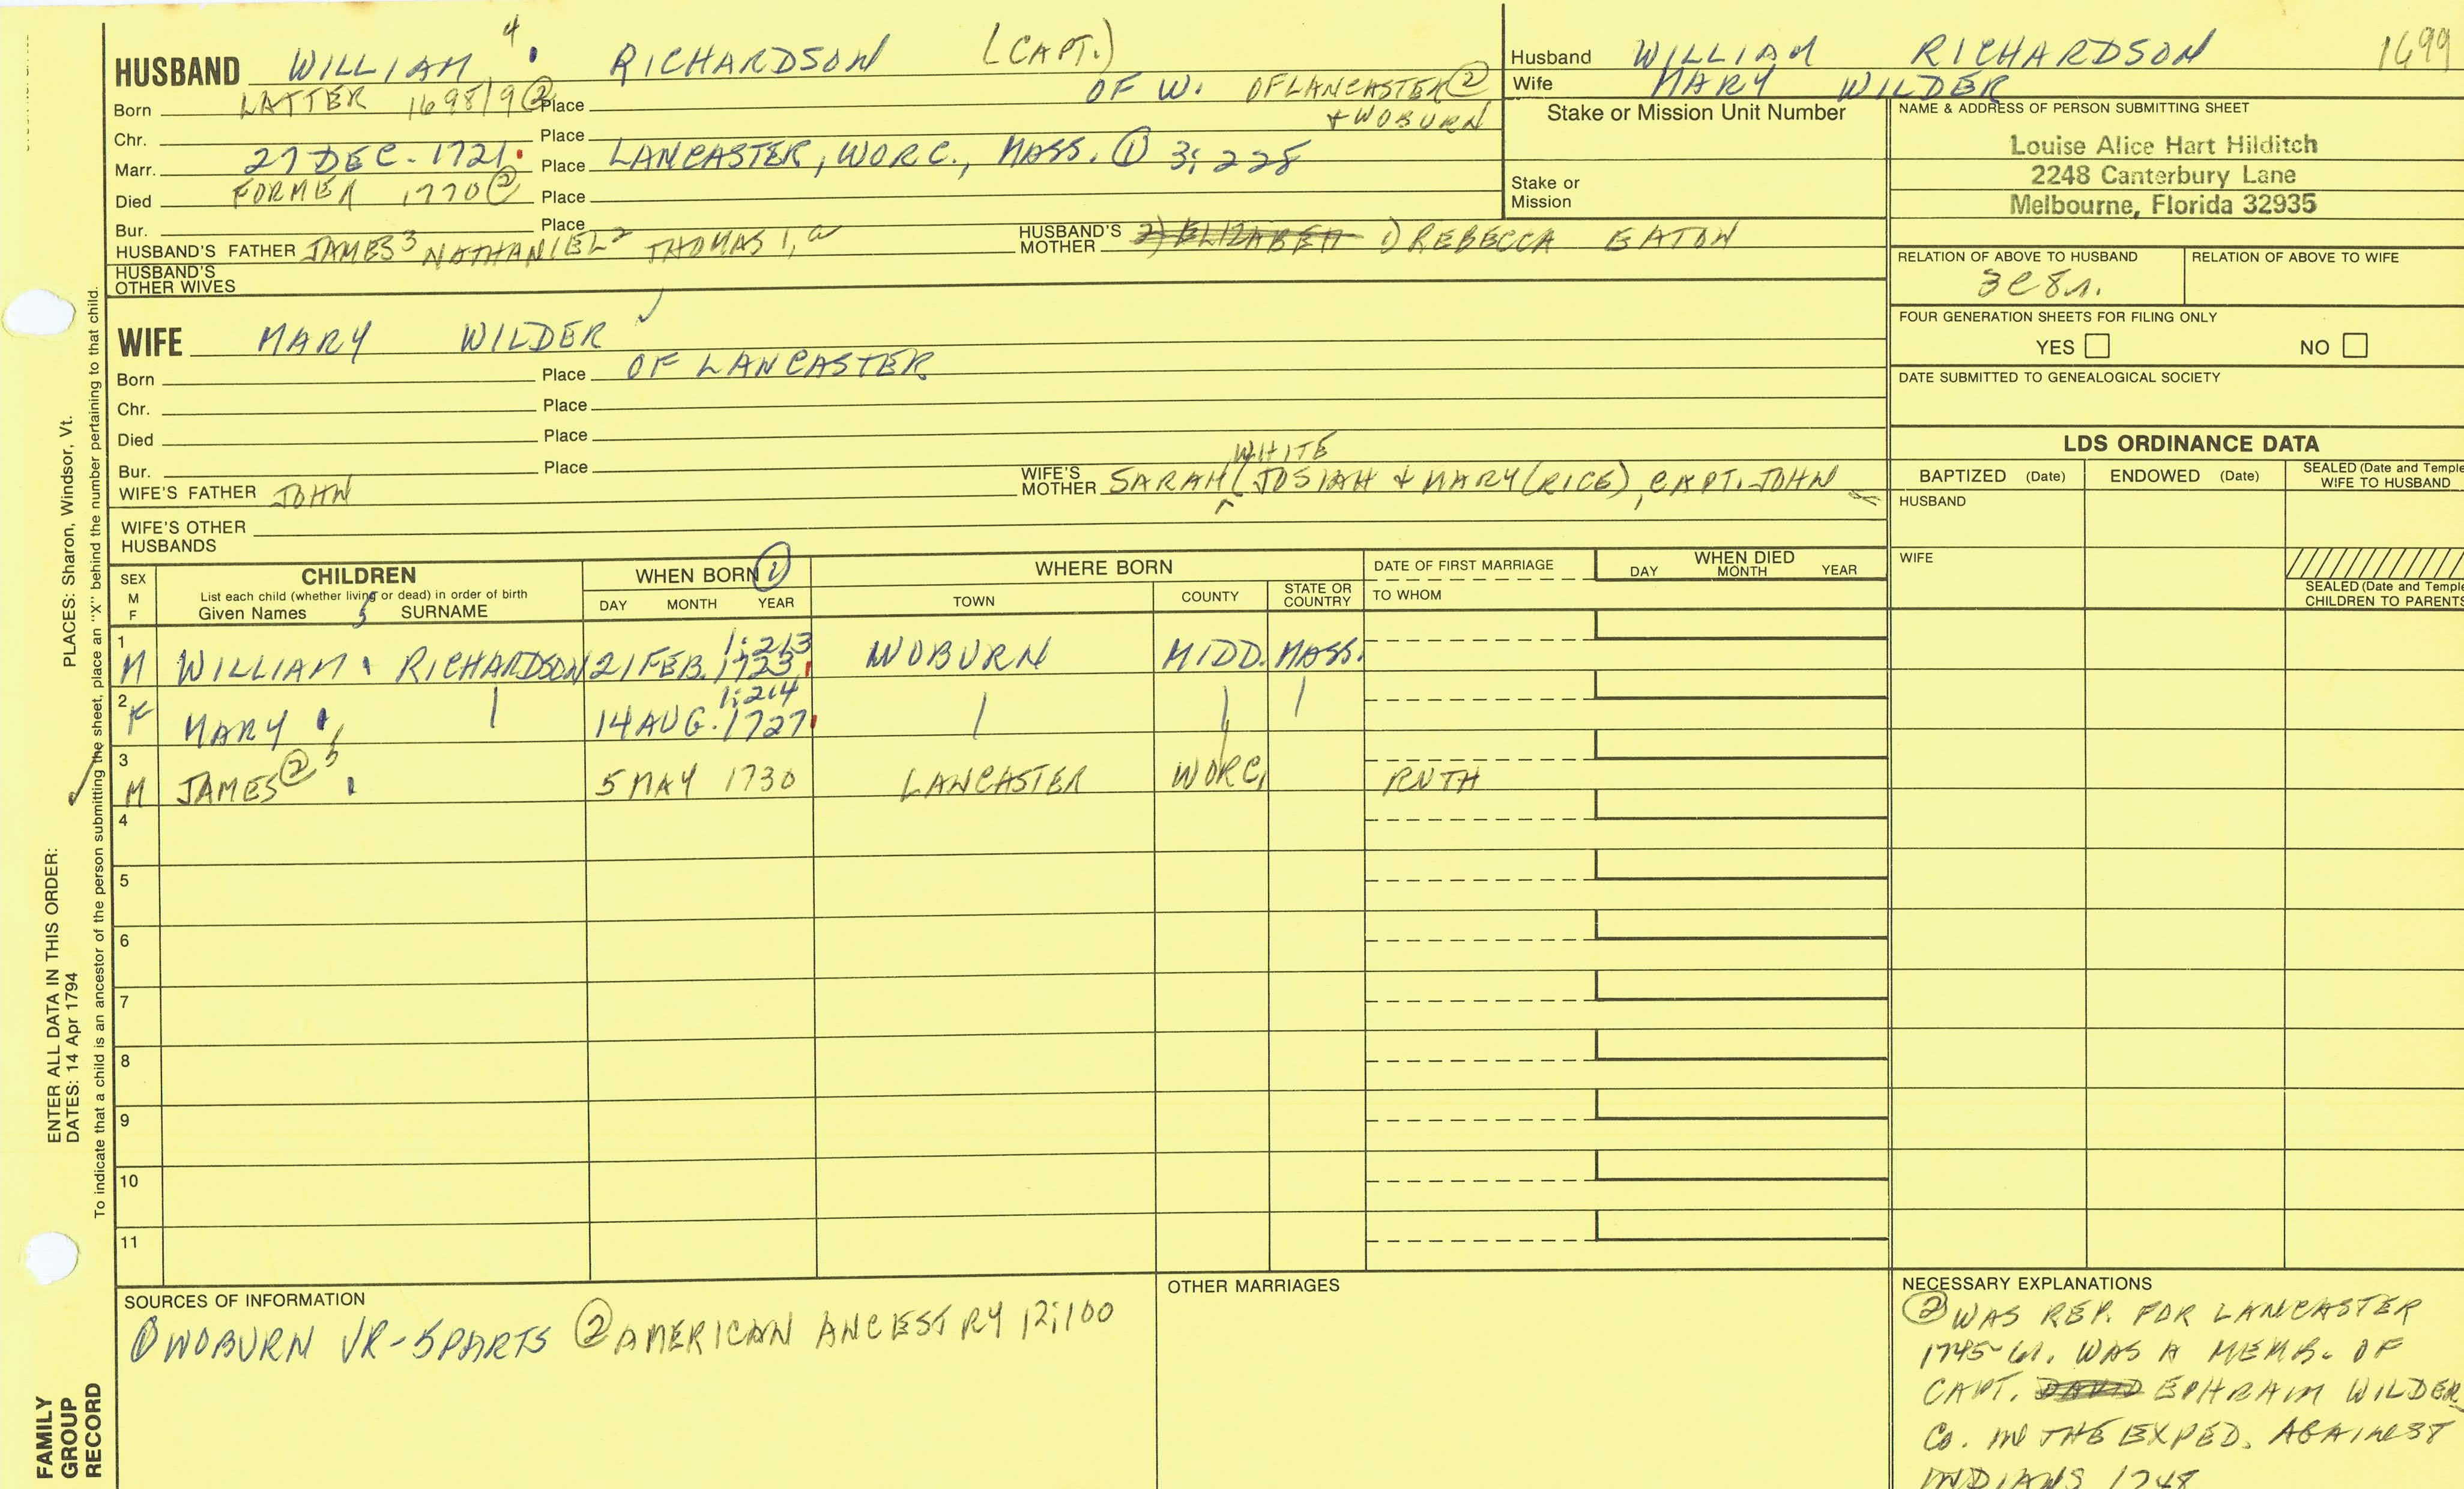 HUSBAND WILLIAM 4 RICHARDSON (CAPT.)
Born LATTER 1698/9 ② Place OF W. OF LANCASTER ②
+ WOBURN
Chr. Place
Marr. 27 DEC. 1721. Place LANCASTER, WORC., MASS. ① 3; 228
Died FORMER 1770 ② Place
Bur. Place
HUSBAND'S FATHER JAMES 3 NATHANIEL 2 THOMAS 1, a HUSBAND'S MOTHER 2) ELIZABETH 1) REBECCA EATON
HUSBAND'S OTHER WIVES
WIFE MARY WILDER ✓
Born Place OF LANCASTER
Chr. Place
Died Place
Bur. Place
WHITE
WIFE'S FATHER JOHN WIFE'S MOTHER SARAH ^ (JOSIAH + MARY (RICE), CAPT. JOHN
WIFE'S OTHER HUSBANDS
Husband WILLIAM RICHARDSON 1699
Wife MARY WILDER
Stake or Mission Unit Number
Stake or Mission
NAME & ADDRESS OF PERSON SUBMITTING SHEET
Louise Alice Hart Hilditch
2248 Canterbury Lane
Melbourne, Florida 32935
RELATION OF ABOVE TO HUSBAND RELATION OF ABOVE TO WIFE
3C8r.
FOUR GENERATION SHEETS FOR FILING ONLY
YES NO
DATE SUBMITTED TO GENEALOGICAL SOCIETY
LDS ORDINANCE DATA
BAPTIZED (Date) ENDOWED (Date) SEALED (Date and Temple WIFE TO HUSBAND
HUSBAND
WIFE
SEALED (Date and Temple
CHILDREN TO PARENTS
SEX M F CHILDREN WHEN BORN ① WHERE BORN DATE OF FIRST MARRIAGE WHEN DIED
List each child (whether living or dead) in order of birth
Given Names 5 SURNAME DAY MONTH YEAR TOWN COUNTY STATE OR COUNTRY TO WHOM DAY MONTH YEAR
1 1:213
M WILLIAM RICHARDSON 21 FEB. 1723 WOBURN MIDD. MASS.
2 1:214
F MARY 14 AUG. 1727
3
✓ M JAMES ② 5 5 MAY 1730 LANCASTER WORC. RUTH
4
5
6
7
8
9
10
11
SOURCES OF INFORMATION
① WOBURN VR-5PARTS ② AMERICAN ANCESTRY 12:100
OTHER MARRIAGES
NECESSARY EXPLANATIONS
② WAS REP. FOR LANCASTER
1745-61. WAS A MEMB. OF
CAPT. DAVID EPHRAIM WILDER
CO. IN THE EXPED. AGAINST
INDIANS 1748
PLACES: Sharon, Windsor, Vt.
ENTER ALL DATA IN THIS ORDER:
DATES: 14 Apr 1794
To indicate that a child is an ancestor of the person submitting the sheet, place an "X" behind the number pertaining to that child.
FAMILY
GROUP
RECORD